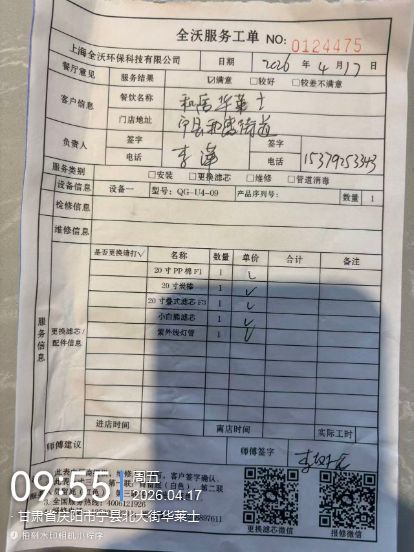 全沃服务工单 NO: 0124475
上海全沃环保科技有限公司 日期 2026年4月17日
餐厅意见 服务结果 ☑满意 □较好 □较差不满意
客户信息 餐饮名称 和盛华莱士
门店地址 宁县和盛街道
负责人 签字 签字
电话 电话 15379253343
服务类别 □安装 □更换滤芯 □维修 □管道消毒
设备信息 设备一 型号: QG-U4-09 产品序列号: 数量 1
检修信息
维修信息
服务信息 更换滤芯/配件信息
是否更换请打√ 名称 数量 单价 合计 备注
20寸PP棉F1 1 √
20寸炭棒 1 √
20寸叠式滤芯F3 1 √
小白熊滤芯 1 √
紫外线灯管 1 √
进店时间 离店时间 实际工时
师傅建议 师傅签字
客户签字确认
(白色)
第二联
3、全国 4006121926
更换滤芯微信 报修微信
09:55 周五
2026.04.17
甘肃省庆阳市宁县北大街华莱士
相刻水印相机小程序